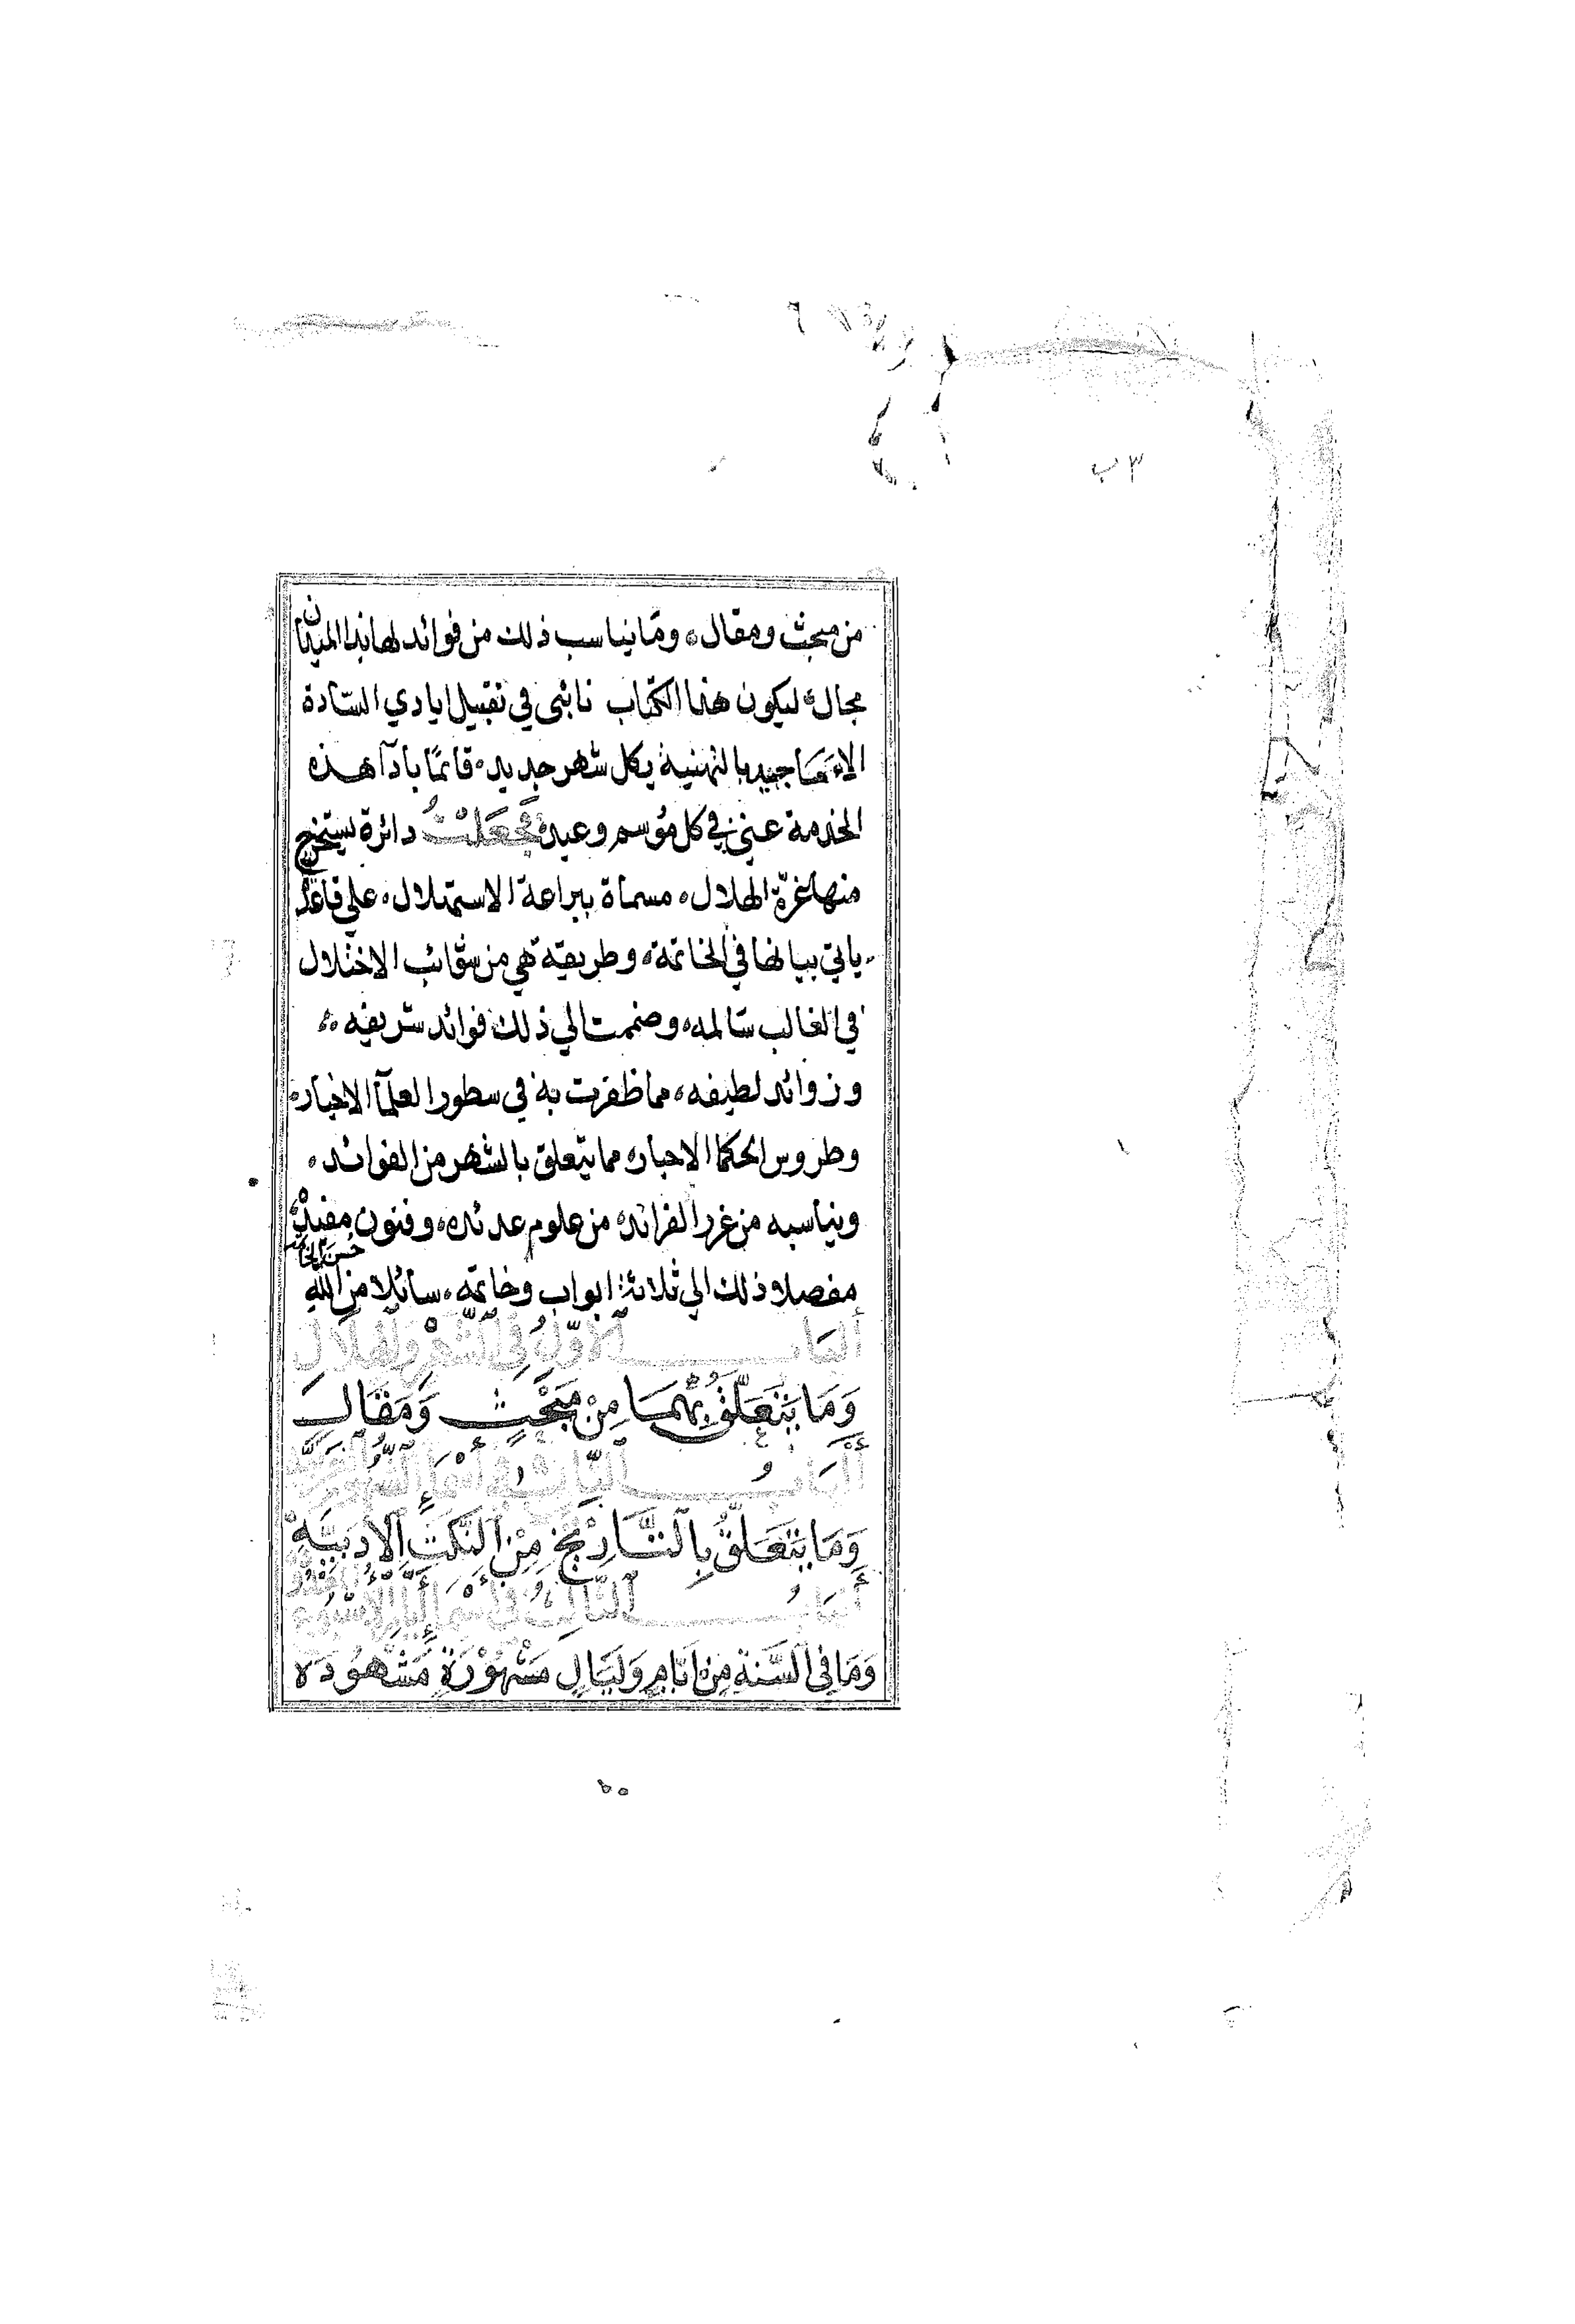 ٣ب
من مبحث ومقال، ومما يناسب ذلك من فوائد لها بهذا الميدان
مجال، ليكون هذا الكتاب نائبي في تقبيل ايادي السادة
الاماجيد بالتهنية بكل شهر جديد، قائمًا بادآ هذه
الخدمة عني في كل مؤسم وعيد، فجعلت دائرة يستخرج
منها غرّة الهلال، مسماة ببراعة الاستهلال، علي قاعدة
ياتي بيانها في الخاتمة، وطريقة هي من شوائب الاختلال
في الغالب سالمه، وضممت الي ذلك فوائد شريفه،
وزوائد لطيفه، مما ظفرت به في سطور العلمآ الاخيار،
وطروس الحكما الاحبار، مما يتعلق بالشهر من الفوائد،
ويناسبه من غرر الفرائد، من علوم عديده، وفنون مفيدة
مفصلا ذلك الي ثلاثة ابواب وخاتمه، سائلا من الله حسن الخاتمة
ألبَاب الأوّلُ فِي الشَّهْرِ وَالهِلَالِ
وَمَا يَتَعَلَّقُ بِهِمَا مِنْ مَبْحَثٍ وَمَقَالٍ
أَلْبَابُ الثَّانِي فِي أَسْمَاءِ الشُّهُورِ العَرَبِيَّة
وَمَا يَتَعَلَّقُ بِالتَّارِيْخِ مِنَ النُّكَتِ الأدَبِيَّةِ
أَلبَابُ الثَّالِثُ فِي أَسْمَاءِ أَيَّامِ الأُسْبُوعِ
وَمَا فِي السَّنَةِ مِنْ اَيَّامٍ وَلَيَالٍ مَشْهُوْرَةٍ مَشْهُوْدَه